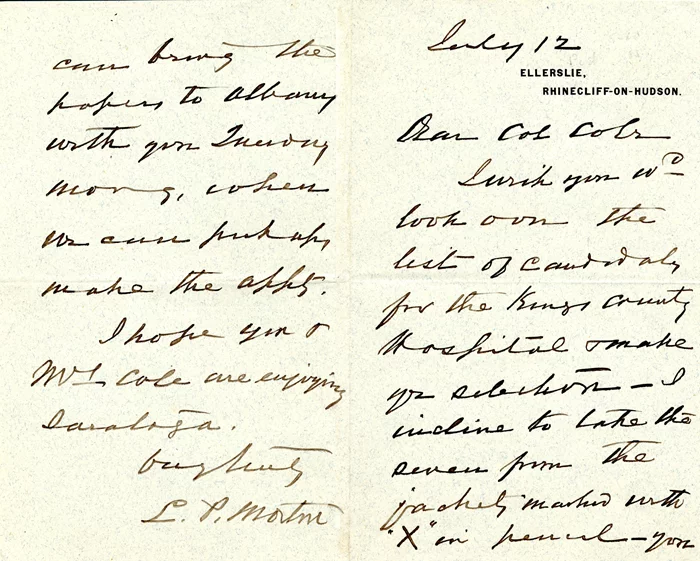 July 12
ELLERSLIE,
RHINECLIFF-ON-HUDSON.
Dear Col Cole
I wish you wd
look over the
list of candidates
for the Kings County
Hospital & make
yr selection — I
incline to take the
seven from the
jackets marked with
"X" in pencil — you
can bring the
papers to Albany
with you Tuesday
morng, when
we can perhaps
make the appts.
I hope you &
Mrs Cole are enjoying
Saratoga.
Very truly
L. P. Morton